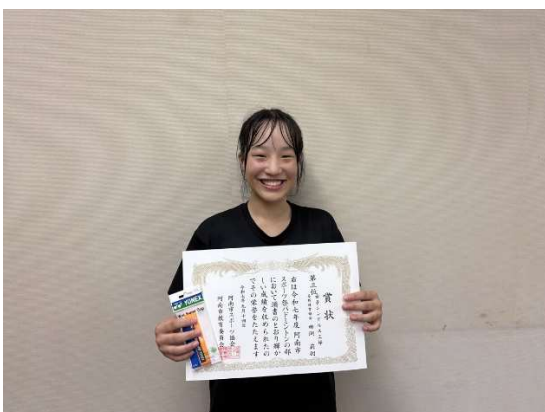 賞状
第三位
右は令和七年度 阿南市
スポーツ祭バドミントンの部
において頭書のとおり輝か
しい成績を収められたの
でその栄誉をたたえます
令和七年九月十四日
阿南市スポーツ協会
阿南市教育委員会
YONEX